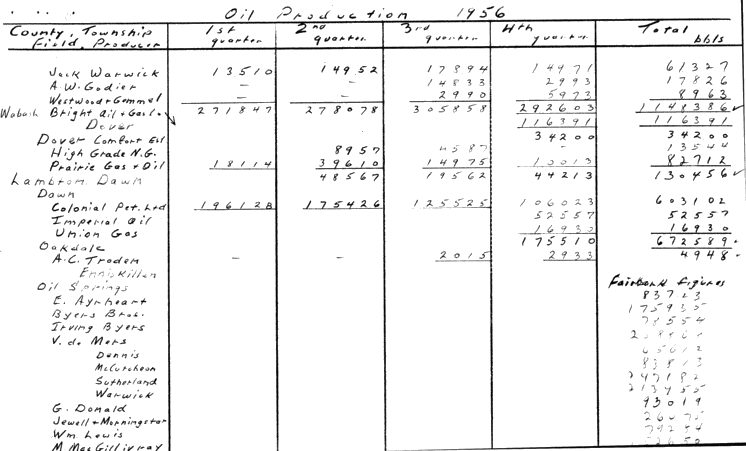 Oil Production 1956
County, Township Field, Producer 1st quarter 2nd quarter 3rd quarter 4th quarter Total bbls
Jack Warwick 13510 14952 17894 14971 61327
A.W. Godier - - 14833 2993 17826
Westwood + Gemmel - - 2990 5973 8963
Wabash Bright Oil + Gas 271847 278078 305858 292603 1148386
Dover 116391 116391
Dover Comfort 34200 34200
High Grade N.G. 8957 4587 - 13544
Prairie Gas + Oil 18114 39610 14975 10013 82712
Lambton Dawn 48567 19562 44213 130456
Dawn
Colonial Pet. Ltd 196128 175426 125525 106023 603102
Imperial Oil 52557 52557
Union Gas 16930 16930
Oakdale 175510 672589
A.C. Troden - - 2015 2933 4948
Enniskillen
Oil Springs Fairbank figures
E. Ayrheart 83723
Byers Bros.
Irving Byers 78554
V. de Mers
Dennis
McCutcheon
Sutherland
Warwick
G. Donald 93019
Jewell + Morningstar
Wm. Lewis
M MacGillivray